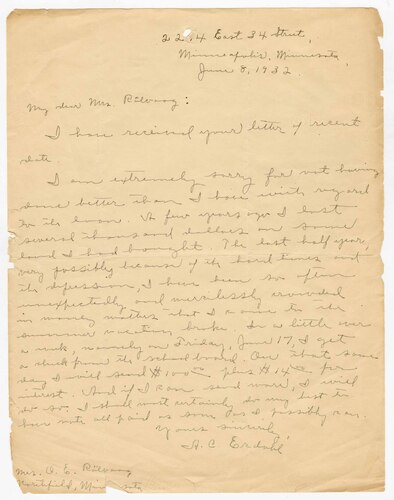 2214 East 34 Street,
Minneapolis, Minnesota,
June 8, 1932.
My dear Mrs. Rölvaag:
I have received your letter of recent
date.
I am extremely sorry for not having
done better than I have with regard
to the loan. A few years ago I lost
several thousand dollars on some
land I had bought. The last half year,
very possibly because of the hard times and
the depression, I have been so often
unexpectedly and mercilessly crowded
in money matters that I came to the
summer vacation broke. In a little over
a week, namely on Friday, June 17, I get
a check from the school board. On that same
day I will send $100 plus $14 for
interest. And if I can send more, I will
do so. I shall most certainly do my best to
have note all paid as soon as I possibly can.
Yours sincerely,
A. C. Erdahl
Mrs. O. E. Rölvaag,
Northfield, Minnesota